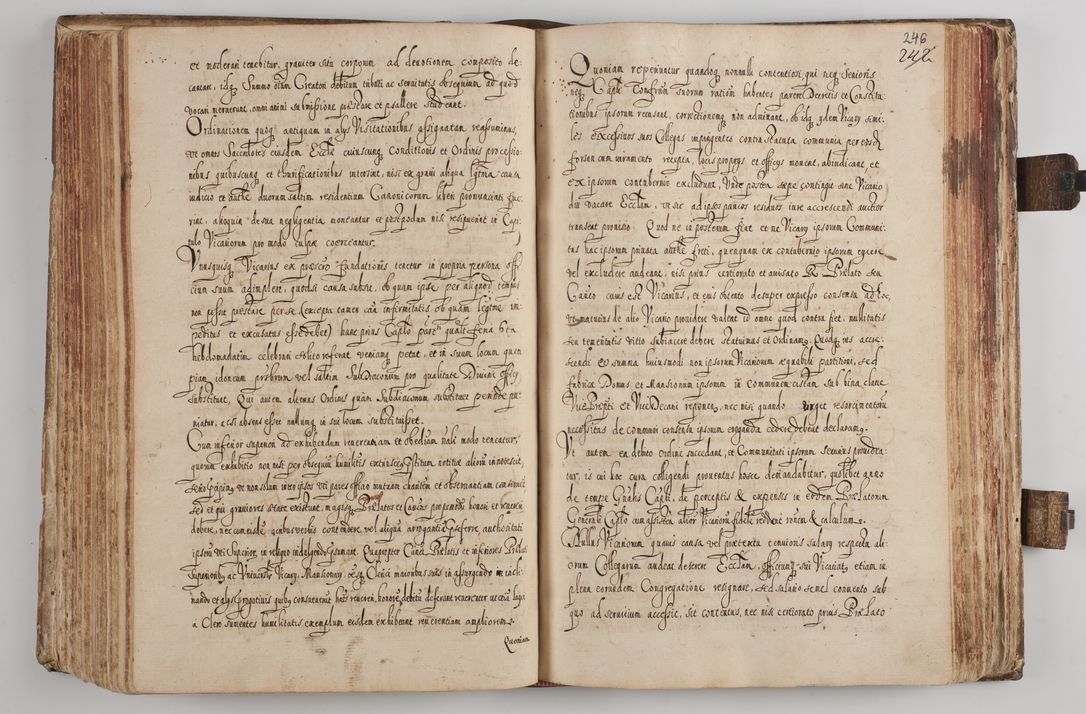 et moderari tenebitur, graviter situ corporum ad devotionem composito de-
cantari, idq3 Summo oium Creatori debitum tributi ac servitutis obsequium, ad quod
vocari meruerunt, omni animi submissione praestare et psallere studeant.
Ordinationem quoq3 antiquam in alys Visitationibus assignatam reassumimus,
ut omnes Sacerdotes eiusdem Ecctae cuiuscunq3 Conditionis et Ordinis processio-
nibus quibuscunq3 et thurificationibus intersint, nisi ex gravi aliqua lgtma causa
iudicio et authe duorum saltim residentium Canonicorum liberi pronunciati fue-
rint, alioquin de sua negligentia moneantur et postmodum nisi resipuerint in Capi-
tulo Vicariorum pro modo culpae coerceantur.
Unusquisq3 Vicarius ex praescro fundationis tenetur in propria persona offi-
cium suum adimplere, quotsi causa subsit, ob quam ipse per aliquod tempus
non possit praestare per se (excepta tamen ca infirmitatis ob quam legitme im-
peditus et excusatus esse debet) hanc prius Caplo pare qualt feria 6ta
hebdomadatim celebrari solito referat veniamq3 petat, et in suum locum quem-
piam idoneum prsbrum vel saltim SubDiaconum pro qualitate Divini officy
substituat, Qui autem alterius Ordinis quam Subdiaconum substituet perinde pu-
nietur, acsi absens esset nullumq3 in sui locum substituisset.
Cum inferior superiori ad exhibendum reverentiam et obediam tali modo teneatur,
quorum exhibitio non nisi per obsequium humilitatis extrinsecq3 Gestum notitiae aliorum innotescit,
seno ut non solum inter ipsos uti pares officio mutuam charitem et observantiam
sed et qui graviores state existunt, magisq3 Praelatos et Canicos propensiori honore et revereri
debere, nec com eisdem quibusverbis contendere, vel aliqua arrogantia praeferre authoritati
ipsorum uti Superior, in religio indulgendo Quapropter Canci Praelatis et inferiores Praelati
Superioribus ac Universi Vicary, Mansionary, caetq3 Clerici maioribus suis in assurgendo in incli-
nando et alys prerogtivis quibq3 consueverunt hacts reveren, honore debito deferant reverenter ut
a Clero sumentes humilitatis exemplum eisdem exhibeant reverentiam ampliorem.
Quoniam
246
242
Quoniam reperiuntur quandoq3 nonnulli contentiosi qui neq3 Senioris
neq3 Capli Confrum suorum ratiom habentes parere Decretis et Constitu-
tionibus ipsorum recusant, correctionemq3 non admittant, ob idq3 ydem Vicary simi-
les excessivos suos Collegas impingentes contra statuta communia per eosdem
forsan cum iuramento recepta, locis proprys et officys movent, abiudicant, et
ex ipsorum contubernio excludunt, Unde postea saepe contingit sine Vicario
diu vacare Ecctam, ut sic ad ipsos paucos residuos iure accrescendi auctior
transeat provisio. Quod ne in posterum fiat et ne Vicary ipsorum Communi-
tas hac ipsorum privata authe freti, quenquam ex contubernio ipsorum eycere
vel excludere audeant, nisi prius certiorato et avisato R. Praelato seu
Canco cuius est Vicarius, et eius obtento desuper expresso consensu ad hoc,
ut maturius de alio Vicario providere valeat id omne quod contra fiet, nullitatis
seu temeritatis vitio subiacere debere statuimus et Ordinamq3. Quodq3 ius accre-
scendi ex summa huiusmodi non ipsorum Vicariorum aequabili partitioni, sed
fabricae Domus et Mansionum ipsorum in Communem cistam sub bina clave
ViePpsiti et ViceDecani reponen, nec nisi quando urget resarcimentorum
necessitas de communi consensu ipsorum eroganda cedere debeat declaramq3.
Ut autem ea debito ordine succedant, et Communitati ipsorum Senius provideа-
tur, is cui hoc cura colligendi proventus hosce demandabitur, quolibet anno
de tempe Gnalis Capli, de perceptis & expensis in eodem Praelatorum
Generale Caplo cum assisten alior Vicariorum fidele reddent ronem & calculum.
Nullus Vicariorum quavis causa vel praetextu tenuioris salary respectu ali-
orum Collegarum audeat deserere Ecctam, officiumq3 sui Vicariat, etiam in
plena eorundem Congregatione resignare, sed salario semel convento sub
quo ad servicium accessit, sit contentus, nec nisi certiorato prius Praelato